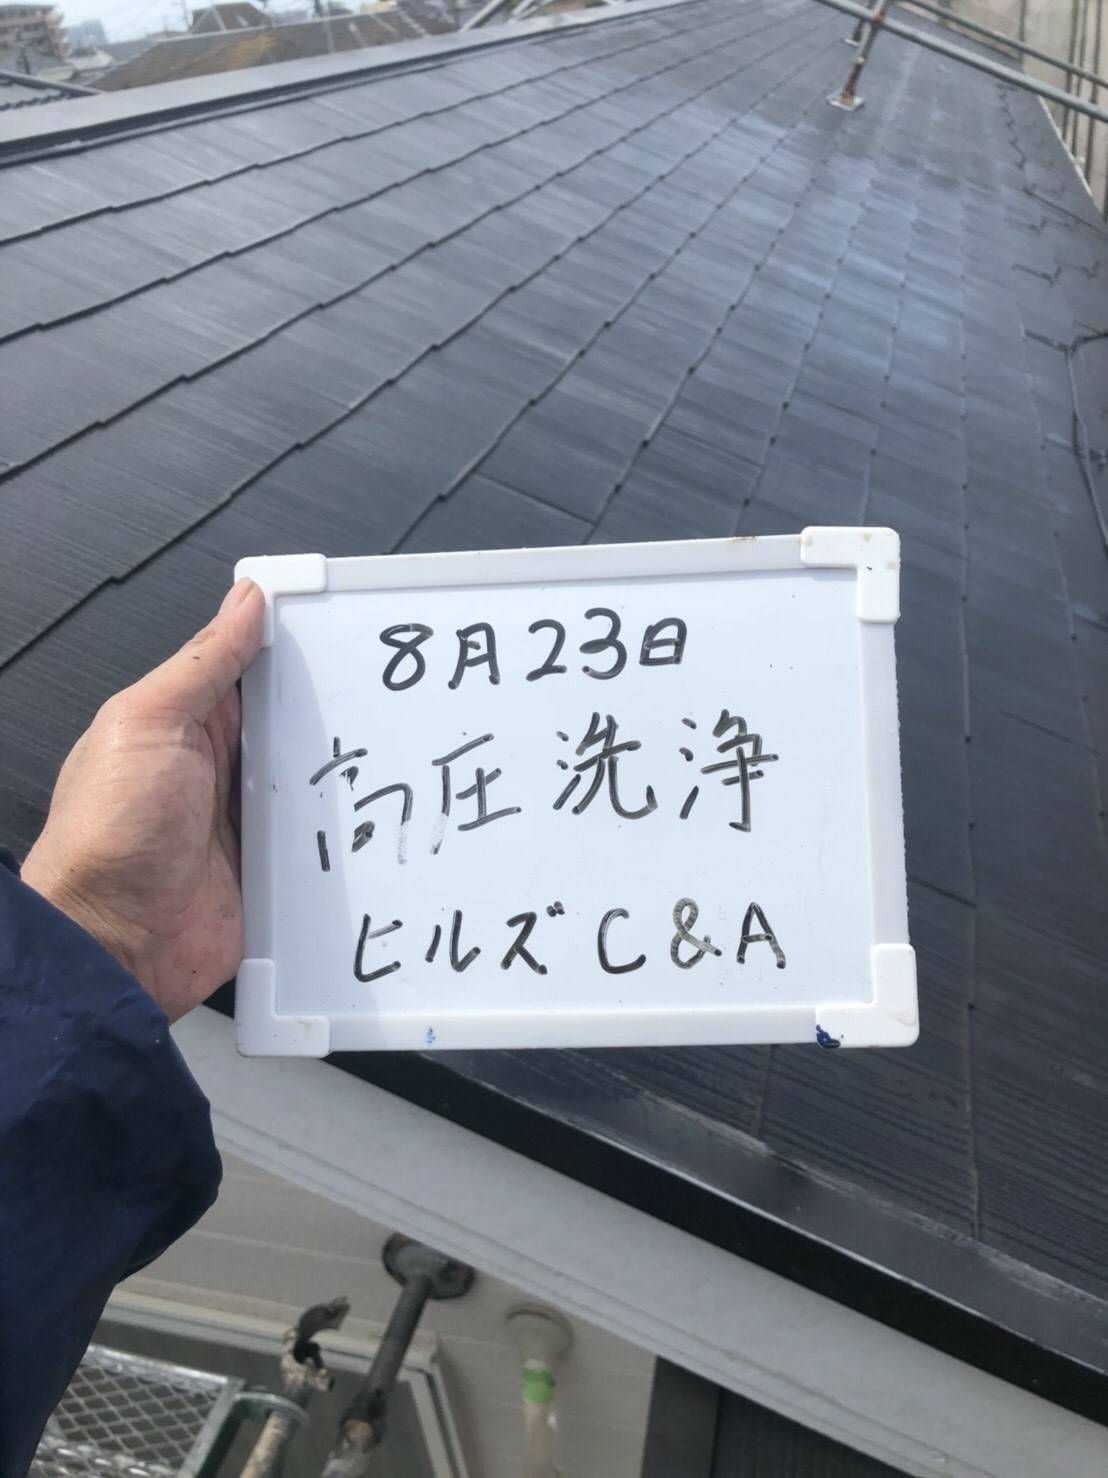 8月23日
高圧洗浄
ヒルズC&A